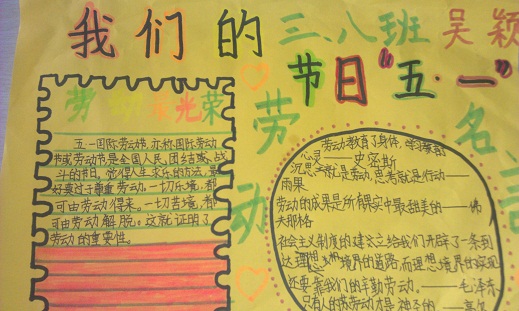 我们的 三、八班 吴颖
节日“五·一”
劳动最光荣
五一国际劳动节,亦称国际劳动
节或劳动节是全国人民,团结或,战
斗的节日。觉得人生求乐的方法,最
好莫过于尊重劳动。一切乐境,都
可由劳动得来。一切苦境,都
可由劳动解脱。这就证明了
劳动的重要性。
劳动名言
劳动教育了身体,学习教育
心灵——史密斯
沉思就是劳动,思考就是行动——
雨果
劳动的成果是所有果实中最甜美的——佛
夫那格
社会主义制度的建立给我们开辟了一条到
达理想境界的道路,而理想境界的实现
还要靠我们的辛勤劳动。——毛泽东
只有人的劳动才是神圣的——高尔